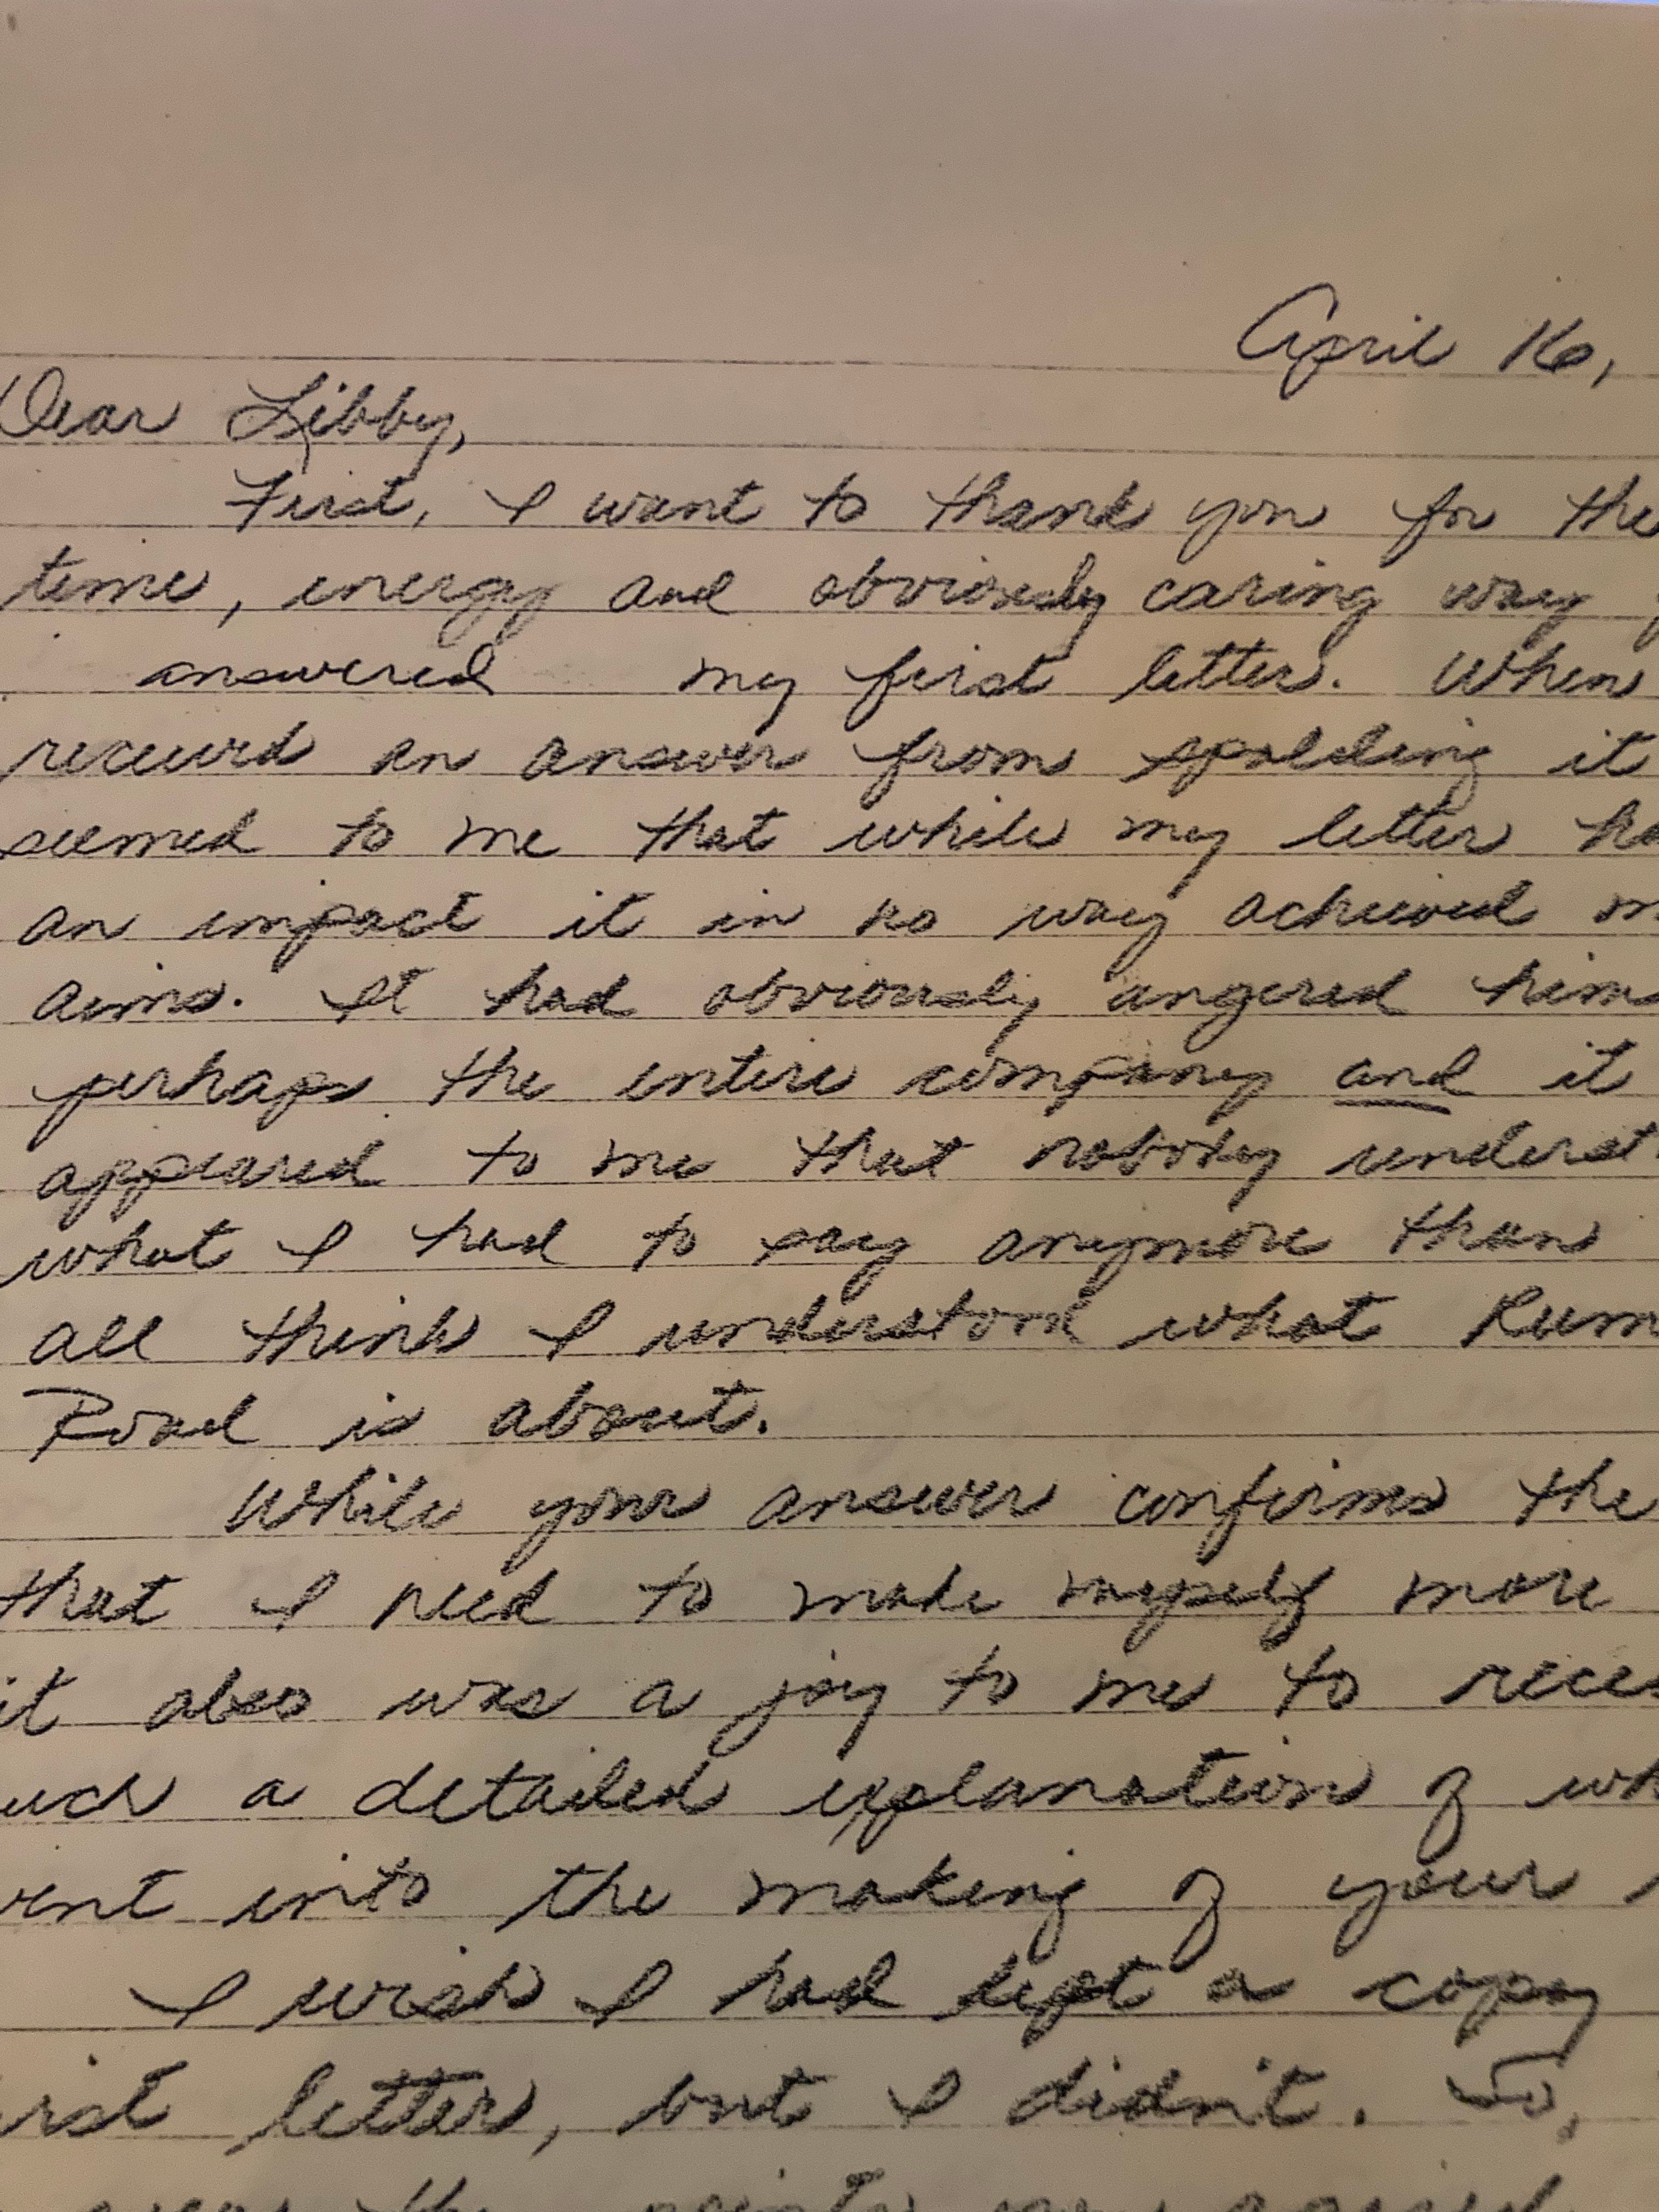 April 16,
Dear Libby,
First, I want to thank you for the
time, energy and obviously caring way
answered my first letter. When
received an answer from spalding it
seemed to me that while my letter ha
an impact it in no way achieved m
aims. It had obviously angered him
perhaps the entire company and it
appeared to me that nobody underst
what I had to say anymore than
all think I understood what Rum
Road is about.
While your answer confirms the
that I need to make myself more
it also was a joy to me to recei
uch a detailed explanation of wh
ent into the making of your
I wish I had kept a copy
irst letter, but I didn't. So,